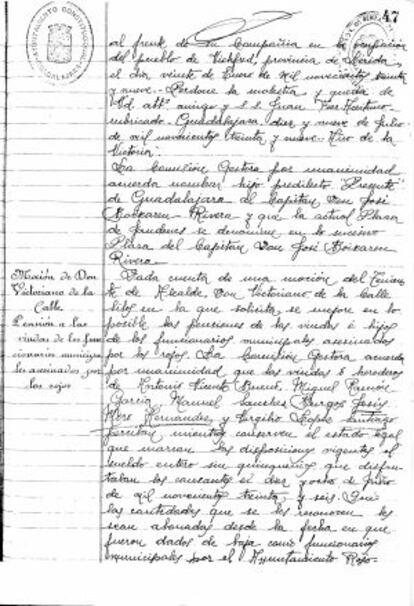 47
AYUNTAMIENTO CONSTITUCIONAL
GUADALAJARA
al frente de su Compañia en la
del pueblo de Vichfred, provincia de Lérida,
el dia veinte de Enero de mil novecientos treinta
y nueve.- Perdone la molestia y queda de
Vd. attº. amigo y s.s. Juan
rubricado.- Guadalajara diez y nueve de Julio
de mil novecientos treinta y nueve.- Año de la
Victoria.
La Comisión Gestora por unanimidad
acuerda nombrar hijo predilecto
de Guadalajara al Capitán Don José
Boixareu Rivera y que la actual Plaza
de Prudenes se denomine en lo sucesivo
Plaza del Capitán Don José Boixareu
Rivera.
Moción de Don
Victoriano de la
Calle.
Pensión a las
viudas de los fun
cionarios municipa
les asesinados por
los rojos
Dada cuenta de una moción del Tenien
te de Alcalde Don Victoriano de la Calle
en la que solicita se mejore en lo
posible las pensiones de las viudas é hijos
de los funcionarios municipales asesinados
por los rojos. La Comisión Gestora acuerda
por unanimidad que las viudas é herederos
de Antonio Vicente Bueno, Miguel Ramón
García, Manuel Sanchez Burgos, Jesús
Hernández, y Virgilio Santiago
perciban mientras conserven el estado legal
que marcan las disposiciones vigentes el
sueldo entero sin quinquenios que disfru-
taban los causantes el diez y ocho de Julio
de mil novecientos treinta y seis. Que
las cantidades que se les reconocen les
sean abonadas desde la fecha en que
fueron dados de baja como funcionarios
municipales por el Ayuntamiento Rojo.-